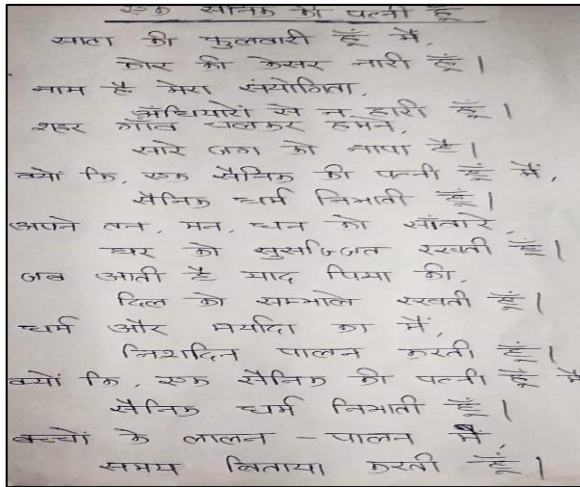 एक सैनिक की पत्नी हूँ
साता की फुलवारी हूँ मैं,
कार की केसर नारी हूँ।
नाम है मेरा संयोगिता,
अँधियारों से न हारी हूँ।
शहर गाँव चलकर हमने,
सारे जग को नापा है।
क्यों कि, एक सैनिक की पत्नी हूँ मैं,
सैनिक धर्म निभाती हूँ।
अपने तन, मन, धन को सँवारे,
घर को सुसज्जित रखती हूँ।
जब आती है याद पिया की,
दिल को सम्भाले रखती हूँ।
धर्म और मर्यादा का मैं,
निशदिन पालन करती हूँ।
क्यों कि, एक सैनिक की पत्नी हूँ मैं
सैनिक धर्म निभाती हूँ।
बच्चों के लालन - पालन में,
समय बिताया करती हूँ।